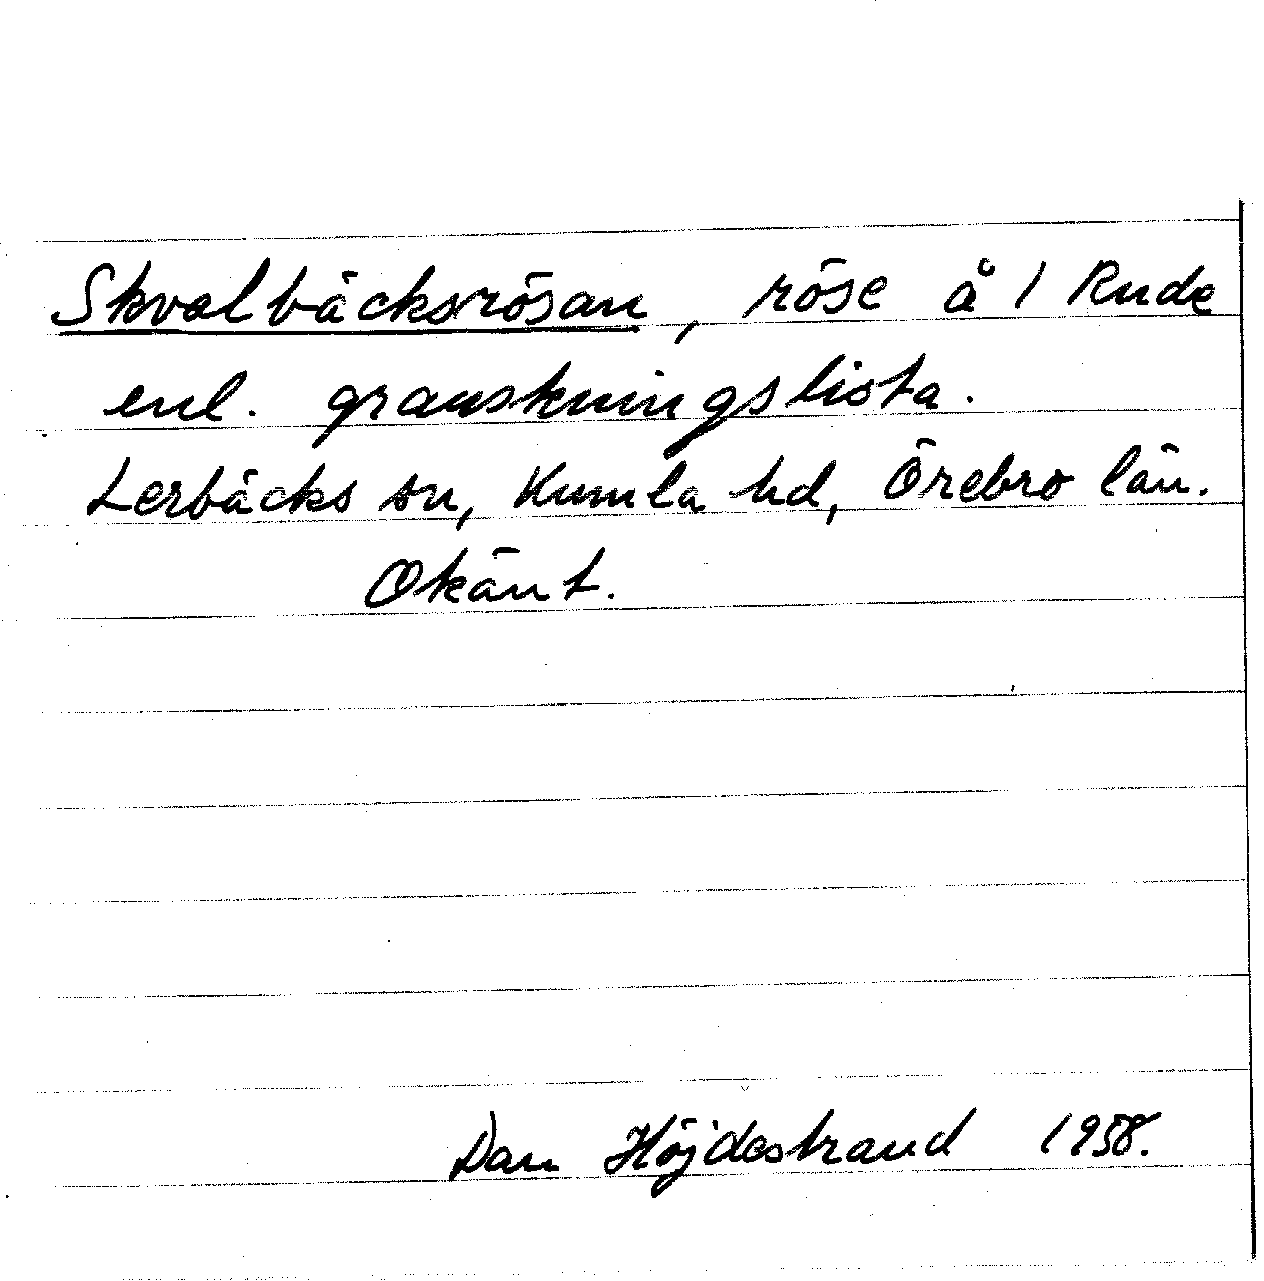 Skvalbäcksrösan, röse å 1 Rude
enl. granskningslista.
Lerbäcks sn, Kumla hd, Örebro län.
Okänt.
Dan Höjdestrand 1958.